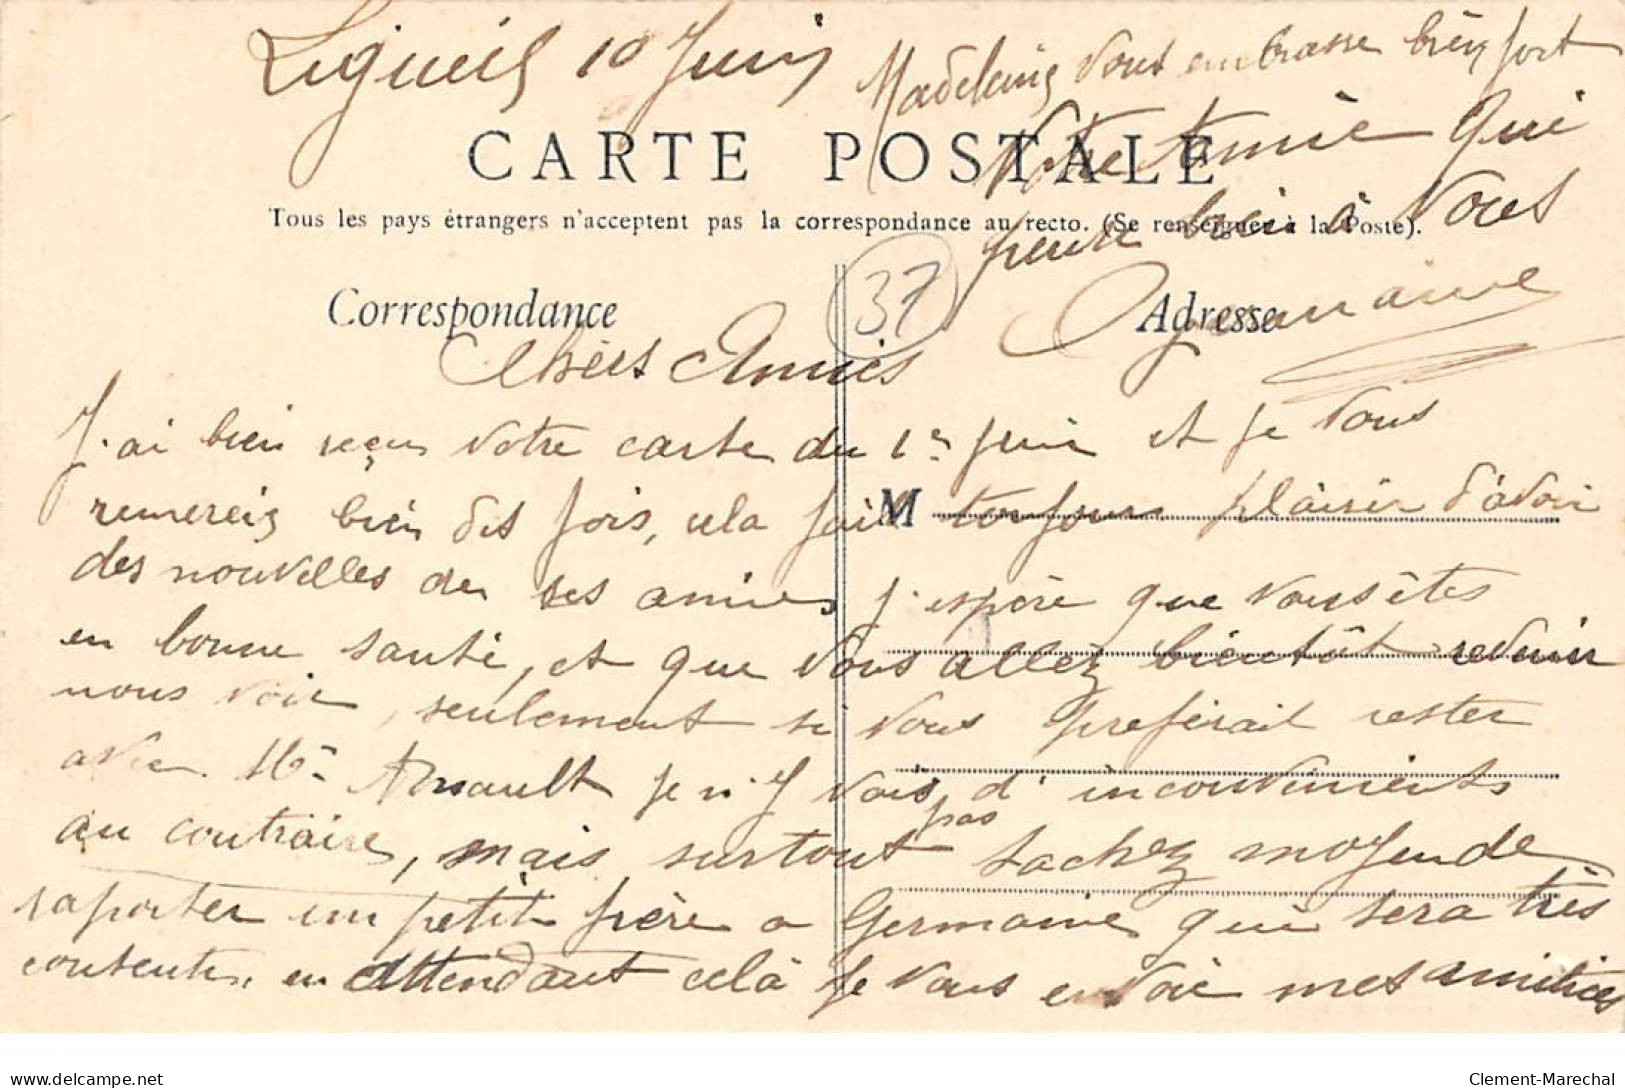 Ligueil 10 Juin
Madeleine vous embrasse bien fort
Votre amie qui
pense bien à vous
Germaine
CARTE POSTALE
Tous les pays étrangers n'acceptent pas la correspondance au recto. (Se renseigner à la Poste).
37
Correspondance
Adresse
Chers Amies
J'ai bien reçu votre carte du 1er Juin et je vous
M
remerciez bien des fois, cela fait toujours plaisir d'avoir
des nouvelles de ses amies j'espère que vous êtes
en bonne santé, et que vous allez bientôt revenir
nous voir, seulement si vous preferait rester
avec Me Arnault je n'y vois pas d'inconvenients
au contraire, mais surtout tachez moyen de
raporter un petit frère a Germaine qui sera très
contente, en attendant celà je vous envoie mes amitiées
delcampe.net
Clement-Marechal